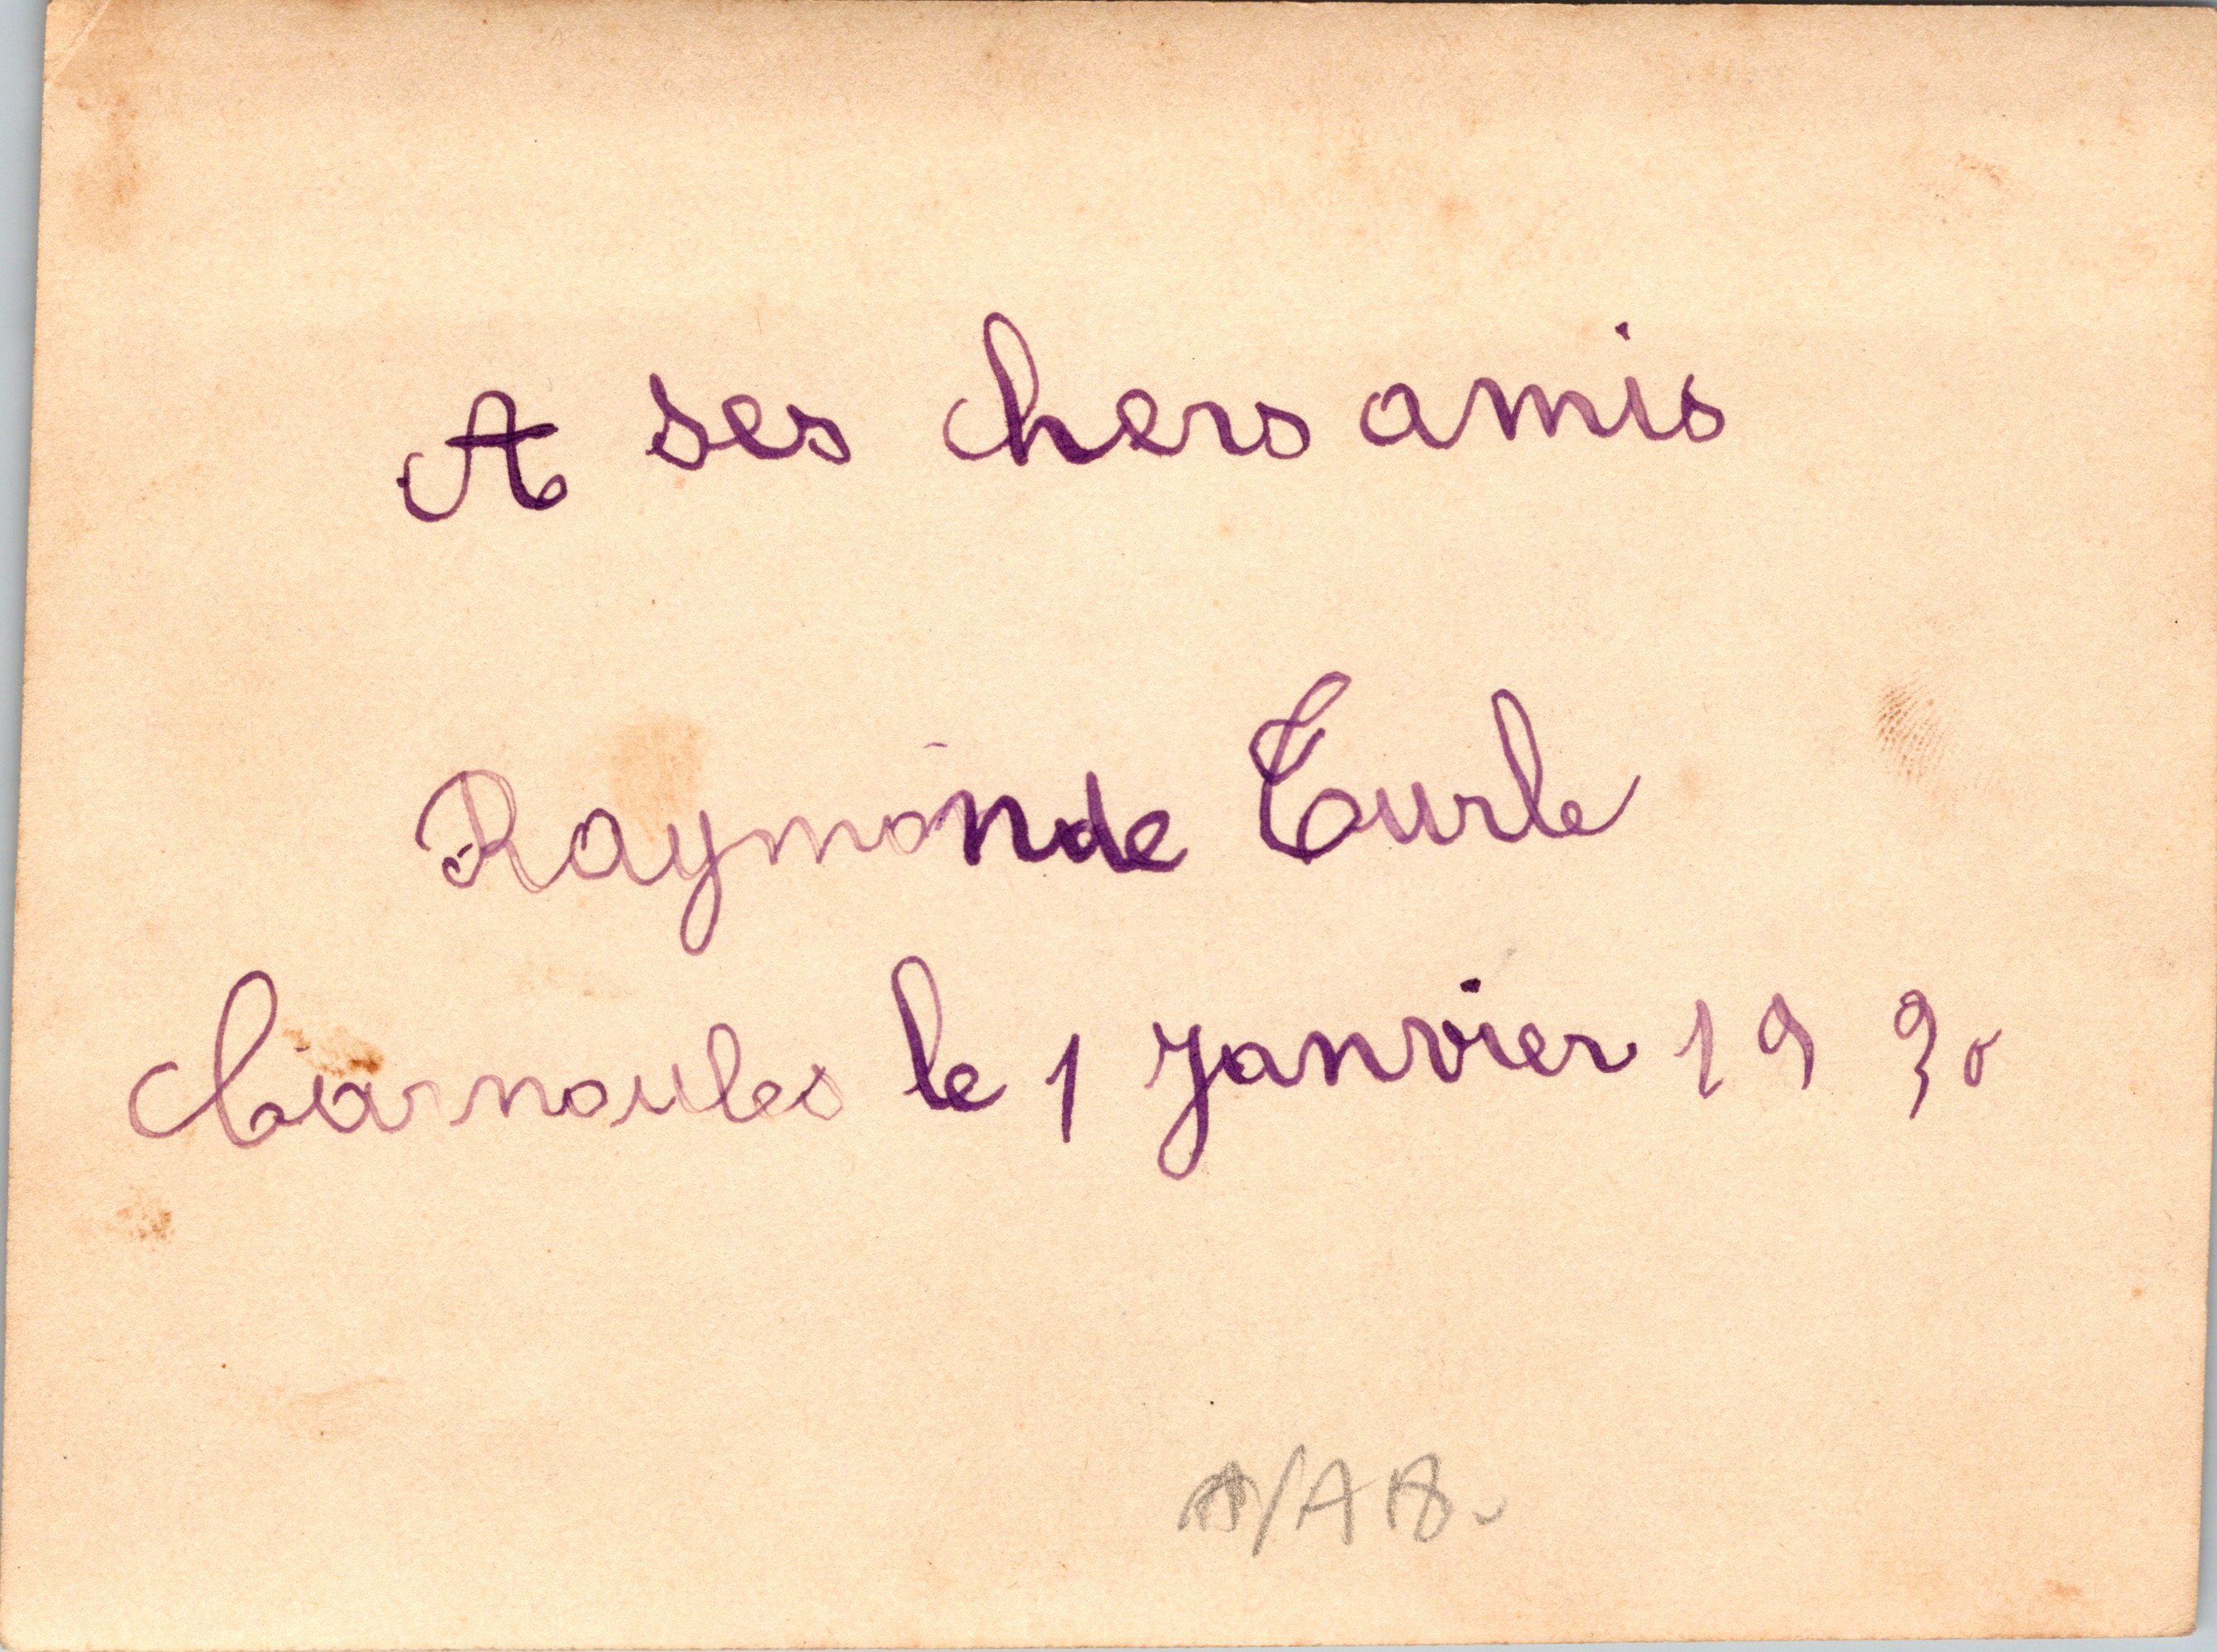 A ses chers amis
Raymonde Turle
Carnoules le 1 Janvier 1930